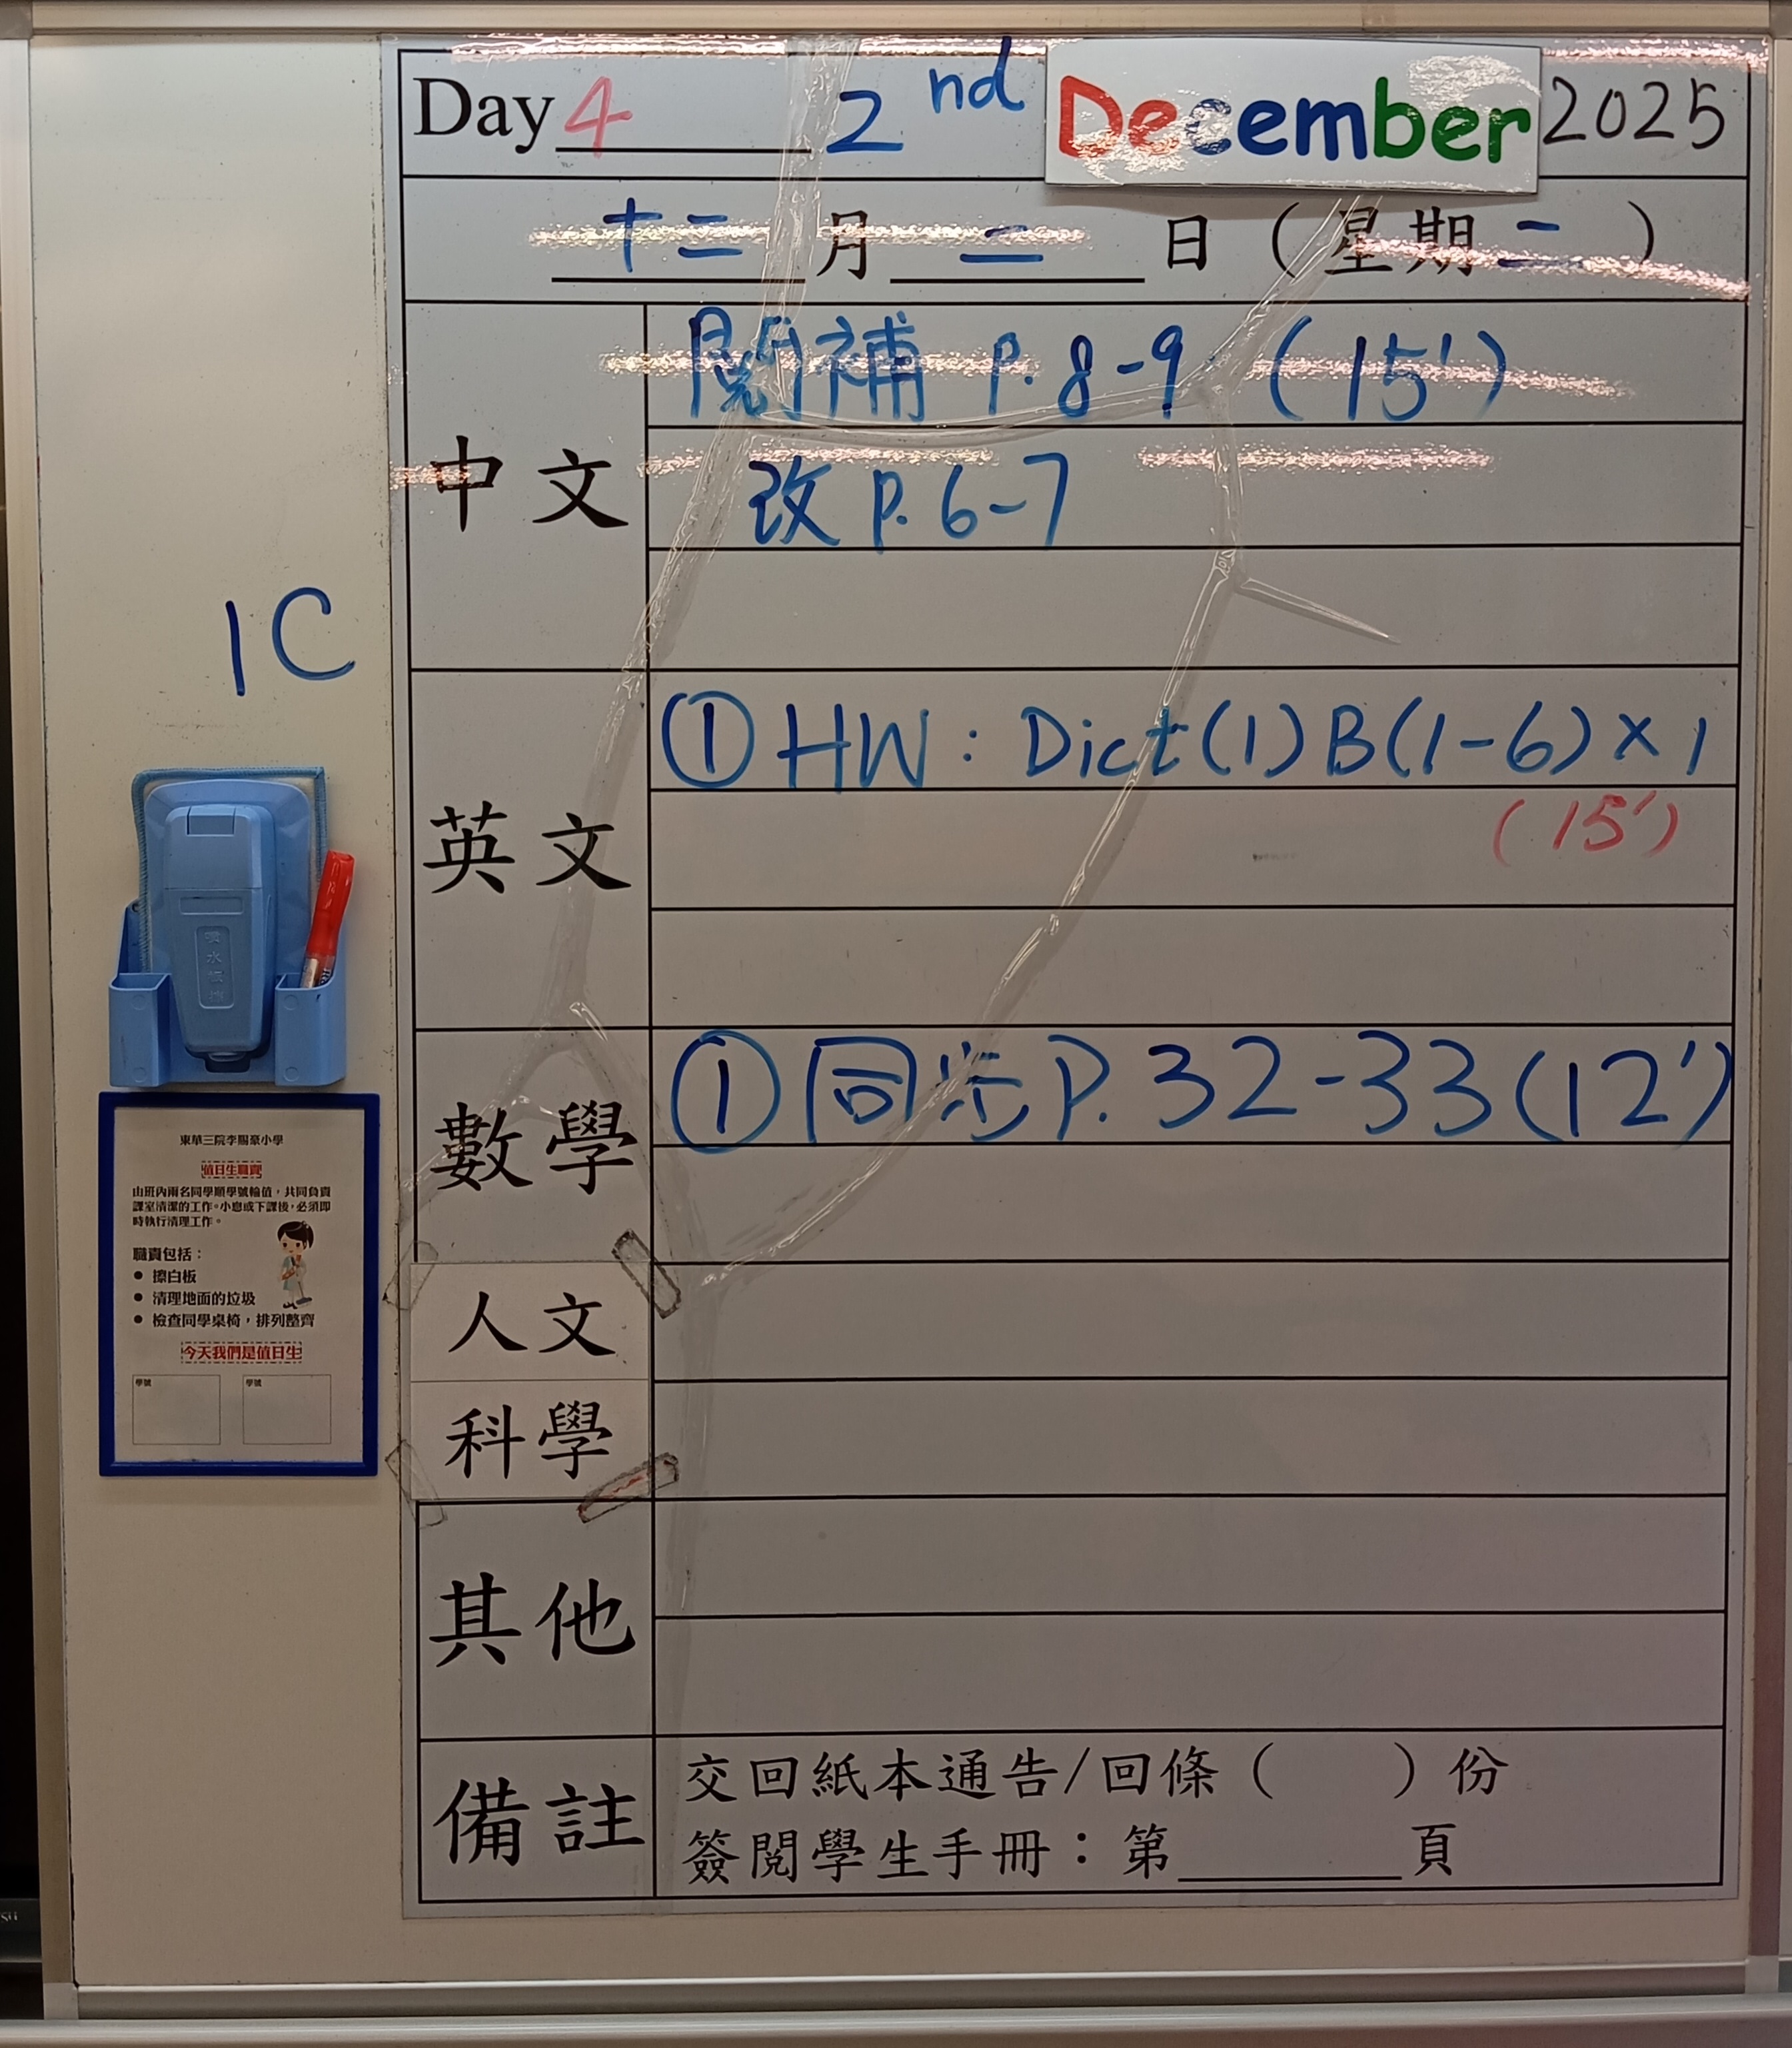 Day 4 2nd December 2025
十二月二日（星期二）
中文
閱補 P. 8-9 (15')
改 P. 6-7
1C
英文
① HW: Dict(1) B(1-6)×1
(15')
數學
① 同步 P. 32-33 (12')
人文
科學
其他
備註
交回紙本通告/回條（ ）份
簽閱學生手冊：第______頁
東華三院李賜豪小學
值日生職責
由班內兩名同學順學號輪值，共同負責
課室清潔的工作。小息或下課後，必須即
時執行清理工作。
職責包括：
● 擦白板
● 清理地面的垃圾
● 檢查同學桌椅，排列整齊
今天我們是值日生
學號 學號